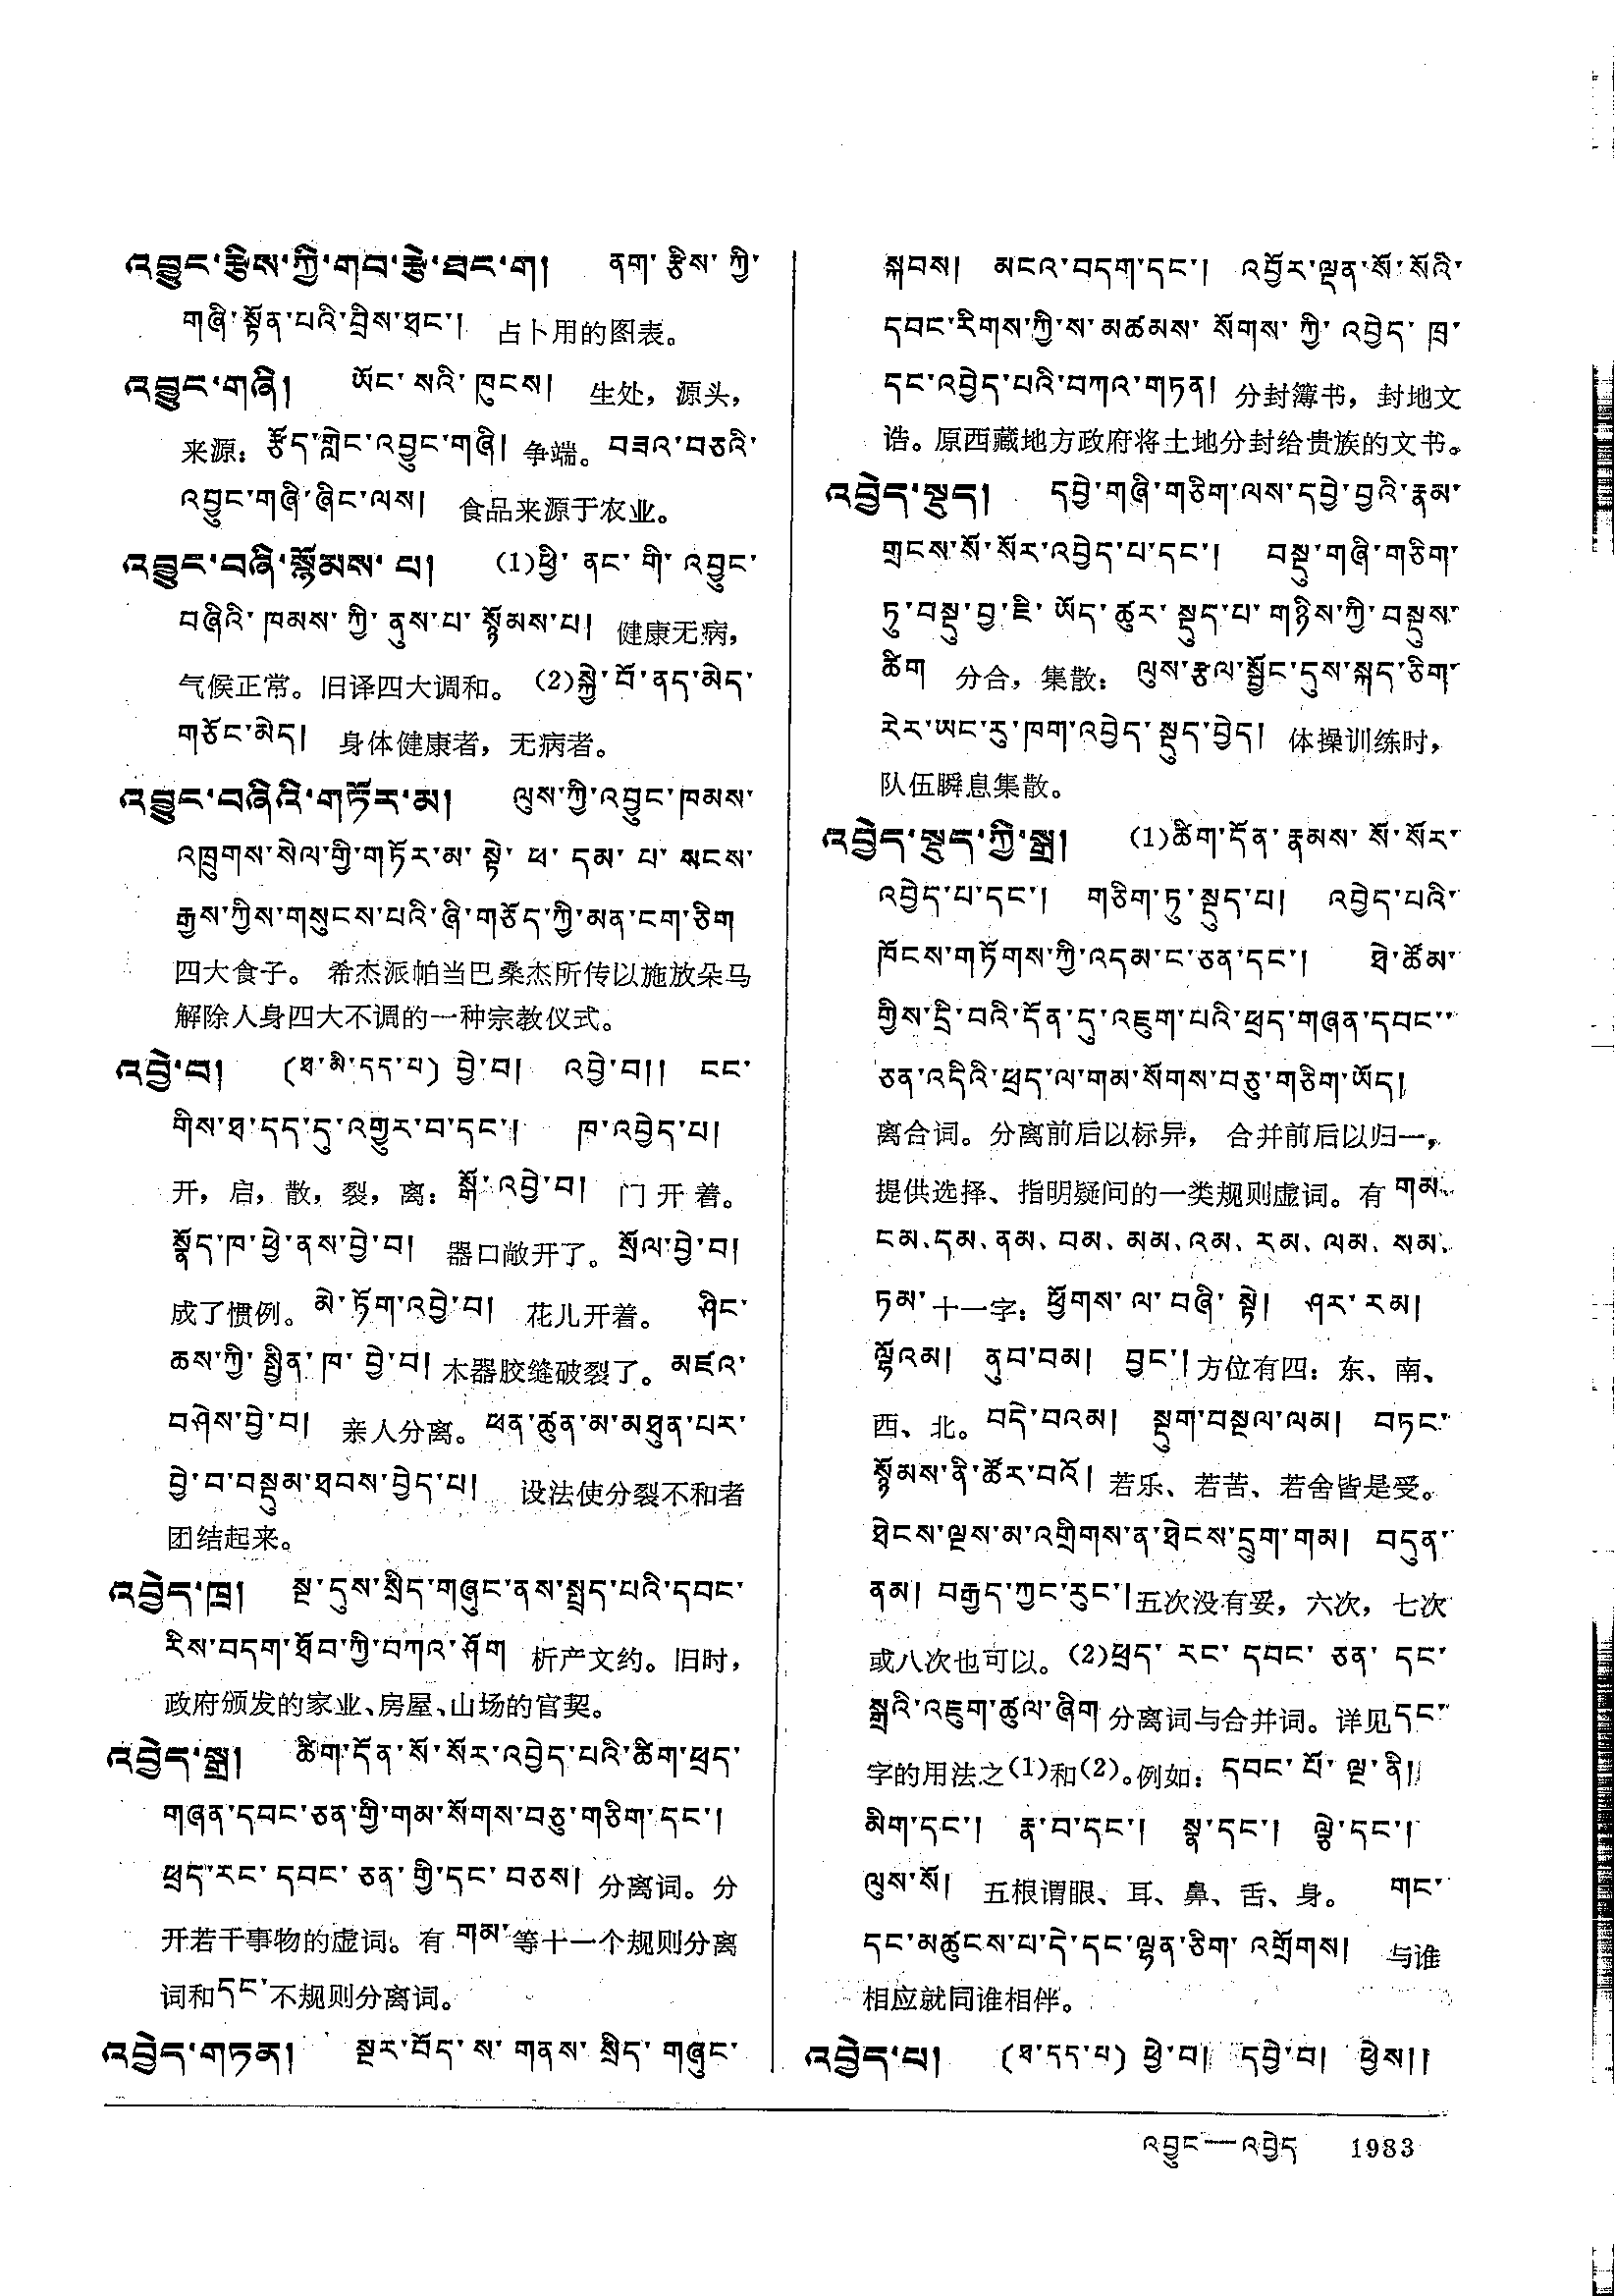 འབྱུང་རྩིས་ཀྱི་གབ་རྩེ་ཐང་ག། ནག་རྩིས་ཀྱི་
གཞི་སྟོན་པའི་བྲིས་ཐང་། 占卜用的图表。
འབྱུང་གཞི། ཡོང་སའི་ཁུངས། 生处，源头，
来源：རྩོད་གླེང་འབྱུང་གཞི། 争端。བཟའ་བཅའི་
འབྱུང་གཞི་ཞིང་ལས། 食品来源于农业。
འབྱུང་བཞི་སྙོམས་པ། (1)ཕྱི་ནང་གི་འབྱུང་
བཞིའི་ཁམས་ཀྱི་ནུས་པ་སྙོམས་པ། 健康无病，
气候正常。旧译四大调和。(2)སྐྱེ་བོ་ནད་མེད་
གཅོང་མེད། 身体健康者，无病者。
འབྱུང་བཞིའི་གཏོར་མ། ལུས་ཀྱི་འབྱུང་ཁམས་
འཁྲུགས་སེལ་གྱི་གཏོར་མ་སྟེ་ཕ་དམ་པ་སངས་
རྒྱས་ཀྱིས་གསུངས་པའི་ཞི་གཅོད་ཀྱི་མན་ངག་ཅིག
四大食子。希杰派帕当巴桑杰所传以施放朵马
解除人身四大不调的一种宗教仪式。
འབྱེ་བ། (ཐ་མི་དད་པ) བྱེ་བ། འབྱེ་བ།། ངང་
གིས་ཐ་དད་དུ་འགྱུར་བ་དང་། ཁ་འབྱེད་པ།
开，启，散，裂，离：སྒོ་འབྱེ་བ། 门开着。
སྣོད་ཁ་ཕྱེ་ནས་བྱེ་བ། 器口敞开了。སྲོལ་བྱེ་བ།
成了惯例。མེ་ཏོག་འབྱེ་བ། 花儿开着。 ཤིང་
ཆས་ཀྱི་སྤྱིན་ཁ་བྱེ་བ། 木器胶缝破裂了。མཛའ་
བཤེས་བྱེ་བ། 亲人分离。ཕན་ཚུན་མ་མཐུན་པར་
བྱེ་བ་བསྡུམ་ཐབས་བྱེད་པ། 设法使分裂不和者
团结起来。
འབྱེད་ཁྲ། སྔ་དུས་སྲིད་གཞུང་ནས་སྤྲད་པའི་དབང་
རིས་བདག་ཐོབ་ཀྱི་བཀའ་ཤོག 析产文约。旧时，
政府颁发的家业、房屋、山场的官契。
འབྱེད་སྒྲ། ཚིག་དོན་སོ་སོར་འབྱེད་པའི་ཚིག་ཕྲད་
གཞན་དབང་ཅན་གྱི་གམ་སོགས་བཅུ་གཅིག་དང་།
ཕྲད་རང་དབང་ཅན་གྱི་དང་བཅས། 分离词。分
开若干事物的虚词。有གམ་等十一个规则分离
词和དང་不规则分离词。
འབྱེད་གཏན། སྔར་བོད་ས་གནས་སྲིད་གཞུང་
སྐབས། མངའ་བདག་དང་། འབྱོར་ལྡན་སོ་སོའི་
དབང་རིགས་ཀྱི་ས་མཚམས་སོགས་ཀྱི་འབྱེད་ཁྲ་
དང་འབྱེད་པའི་བཀའ་གཏན། 分封簿书，封地文
诰。原西藏地方政府将土地分封给贵族的文书。
འབྱེད་སྡུད། དབྱེ་གཞི་གཅིག་ལས་དབྱེ་བྱའི་རྣམ་
གྲངས་སོ་སོར་འབྱེད་པ་དང་། བསྡུ་གཞི་གཅིག་
ཏུ་བསྡུ་བྱ་ཇི་ཡོད་ཚུར་སྡུད་པ་གཉིས་ཀྱི་བསྡུས་
ཚིག 分合，集散：ལུས་རྩལ་སྦྱོང་དུས་སྐད་ཅིག་
རེར་ཨང་རུ་ཁག་འབྱེད་སྡུད་བྱེད། 体操训练时，
队伍瞬息集散。
འབྱེད་སྡུད་ཀྱི་སྒྲ། (1)ཚིག་དོན་རྣམས་སོ་སོར་
འབྱེད་པ་དང་། གཅིག་ཏུ་སྡུད་པ། འབྱེད་པའི་
ཁོངས་གཏོགས་ཀྱི་འདམ་ང་ཅན་དང་། ཐེ་ཚོམ་
གྱིས་དྲི་བའི་དོན་དུ་འཇུག་པའི་ཕྲད་གཞན་དབང་
ཅན་འདིའི་ཕྲད་ལ་གམ་སོགས་བཅུ་གཅིག་ཡོད།
离合词。分离前后以标异，合并前后以归一，
提供选择、指明疑问的一类规则虚词。有གམ་
ངམ、དམ、ནམ、བམ、མམ、འམ、རམ、ལམ、སམ、
ཏམ་十一字：ཕྱོགས་ལ་བཞི་སྟེ། ཤར་རམ།
ལྷོའམ། ནུབ་བམ། བྱང་། 方位有四：东、南、
西、北。བདེ་བའམ། སྡུག་བསྔལ་ལམ། བཏང་
སྙོམས་ནི་ཚོར་བའོ། 若乐、若苦、若舍皆是受。
ཐེངས་ལྔས་མ་འགྲིགས་ན་ཐེངས་དྲུག་གམ། བདུན་
ནམ། བརྒྱད་ཀྱང་རུང་། 五次没有妥，六次，七次
或八次也可以。(2)ཕྲད་རང་དབང་ཅན་དང་
སྒྲའི་འཇུག་ཚུལ་ཞིག 分离词与合并词。详见དང་
字的用法之(1)和(2)。例如：དབང་པོ་ལྔ་ནི།
མིག་དང་། རྣ་བ་དང་། སྣ་དང་། ལྕེ་དང་།
ལུས་སོ། 五根谓眼、耳、鼻、舌、身。 གང་
དང་མཚུངས་པ་དེ་དང་ལྷན་ཅིག་འགྲོགས། 与谁
相应就同谁相伴。
འབྱེད་པ། (ཐ་དད་པ) ཕྱེ་བ། དབྱེ་བ། ཕྱེས།།
འབྱུང—འབྱེད 1983